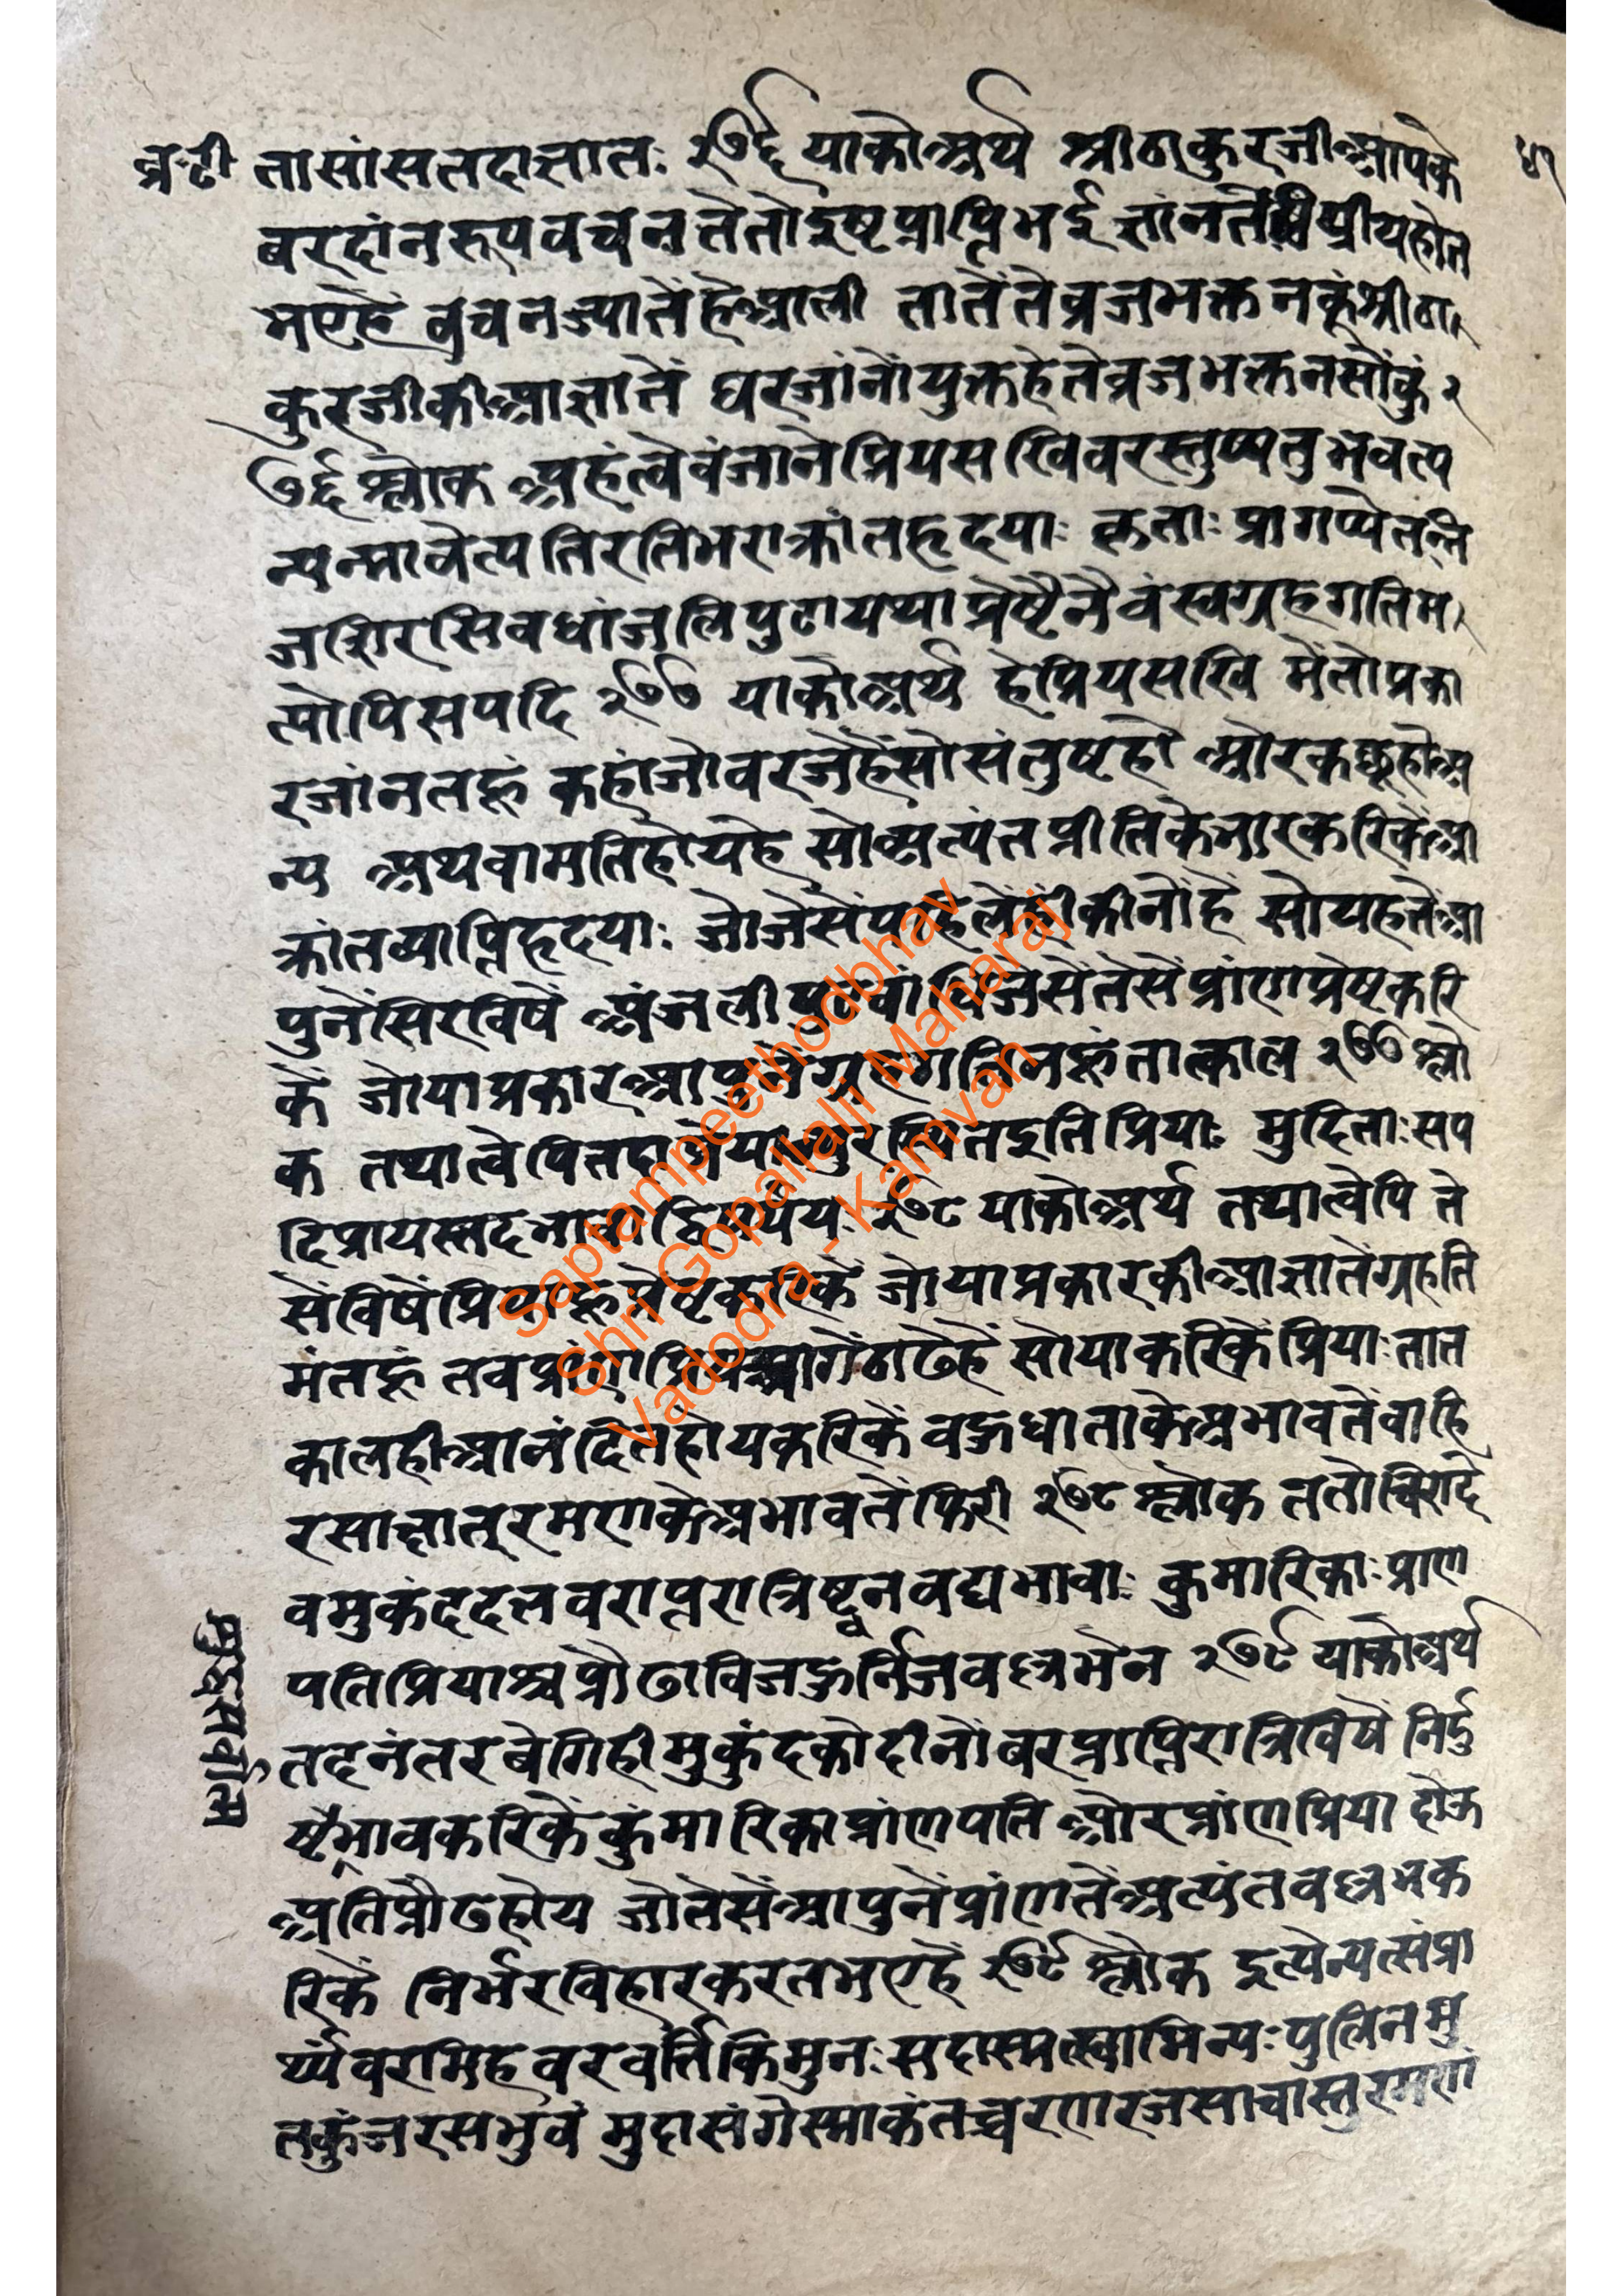 व्र.टी तासांसतदाज्ञातः २७६ याकोअर्थ श्रीठाकुरजीआपके ५१
बरदांनरूपवचनतेतोइष्टप्राप्तिभई प्रीयहोत
भएहें वचनज्यातेंहेआली तातेंतेव्रजभक्तनकूंश्रीठा
कुरजीकीआज्ञातें घरजांनोंयुक्तहेतेव्रजभक्तनसोंकुं २
७६ श्लोक अहंत्वेवंजानेप्रियसखिवरस्तुप्यतुभवत्प
न्यन्मावेत्पतिरतिभराक्रांतहृदयाः कृताः प्रागप्येतन्नि
जशिरसिवधांजलिपुटायथाप्रेष्टैनैवंस्वगृहगतिम
त्योपिसपदि २७७ याकोअर्थ हेप्रियसखि मेंतोप्रका
रजांनतहूं कहांजोवरजेहेंसोसंतुष्टहो औरकछूहोअ
न्य अथवामतिहोयहे सोअत्यंतप्रीतिकेभारकरिकेंआ
क्रांतव्याप्तिहृदयाः जोजेसेंपहिलेंहीकीनोंहें सोयहतेंआ
पुनेंसिरविषें अंजलीपुटबांधिजेसेंतेसेंप्रांणप्रेष्टकरि
कें जोयाप्रकारआपुनेंगृहगतिमहूंतात्काल २७७ श्लो
क तथात्वेपितदा प्रियाः मुदिताःसप
दिप्रायस्तदभा २७८ याकोअर्थ तथात्वेपि ते
सेंविषें जोयाप्रकारकीआज्ञातेंग्रहति
मंतहूं तवप्रांण आगेंठाढेहें सोयाकरिकेंप्रियाःतात
कालहीआनंदितहोयकरिकें वहुधाताकेअभावतेंवाहि
रसाक्षात्‌रमणकेअभावतेंफिरी २७८ श्लोक ततोचिरादे
वमुकंददत्तवराप्तरात्रिष्ट्वनवद्यभावाः कुमारिकाः प्राण
पतिप्रियाश्चप्रौढाविजह्रुर्निजवल्लभेन २७९ याकोअर्थ
तदनंतरबेगिहीमुकुंदकोदीनोंबरप्राप्तिरात्रिविषें निर्दु
ष्टैभावकरिकेंकुंमारिकाप्रांणपति औरप्रांणप्रिया होऊ
अतिप्रौढहोय जोतेसेंआपुनेंप्रांणतेंअत्यंतवल्लभक
रिकें निर्भरविहारकरतभएहें २७९ श्लोक इत्येन्यत्संप्रा
र्थ्यंवरमिहवरवर्त्तिकिमुनःसदास्मत्स्वामिन्यःपुलिनमु
तकुंजरसभुवं मुदासंगेस्माकंतच्चरणरजसाचास्तुरमण
शुद्धसर्वोतम
Saptampeethodbhav
Shri Gopallalji Maharaj
Vadodra - Kamvan